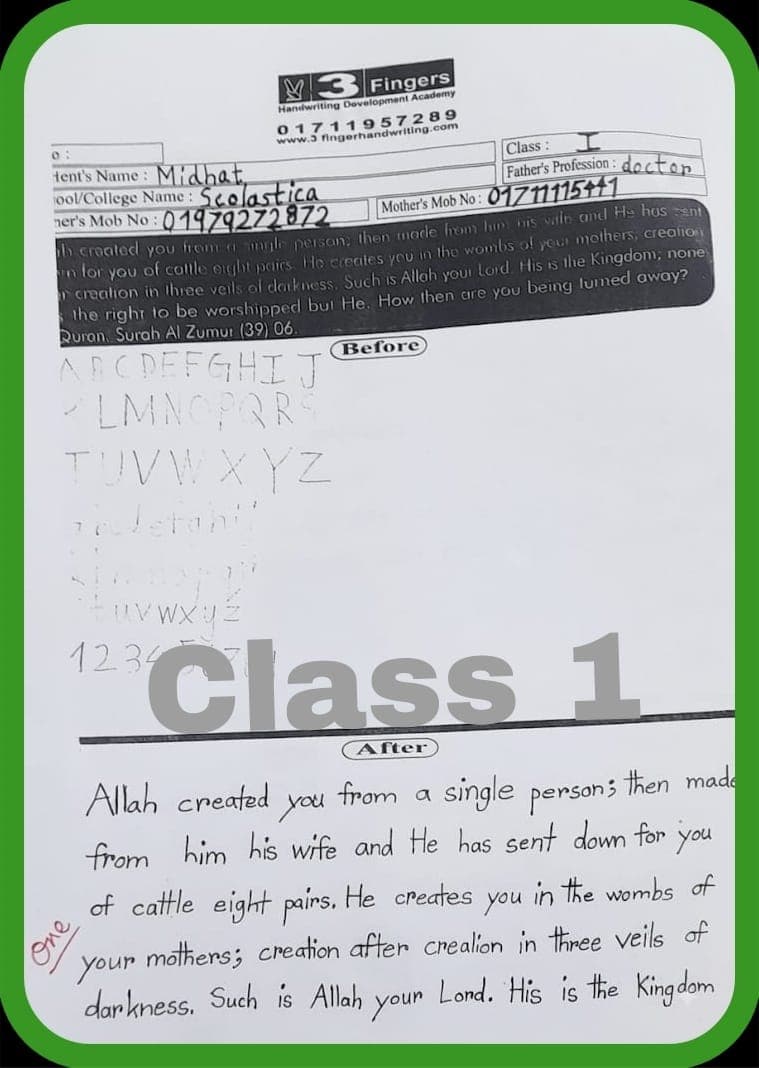 3 Fingers
Handwriting Development Academy
01711957289
www.3 fingerhandwriting.com
o :
Class : I
tent's Name : Midhat
Father's Profession : doctor
ool/College Name : Scolastica
her's Mob No : 01979272872
Mother's Mob No : 01711115441
h created you from a single person; then made from him his wife and He has sent
n for you of cattle eight pairs. He creates you in the wombs of your mothers, creation
r creation in three veils of darkness. Such is Allah your Lord. His is the Kingdom; none
the right to be worshipped but He. How then are you being turned away?
Quran, Surah Al Zumur (39) 06.
Before
A B C D E F G H I J
L M N O P Q R S
T U V W X Y Z
t u v w x y z
1 2 3 4 5
Class 1
After
Allah created you from a single person; then made
from him his wife and He has sent down for you
of cattle eight pairs. He creates you in the wombs of
One
your mothers; creation after crealion in three veils of
darkness. Such is Allah your Lord. His is the Kingdom